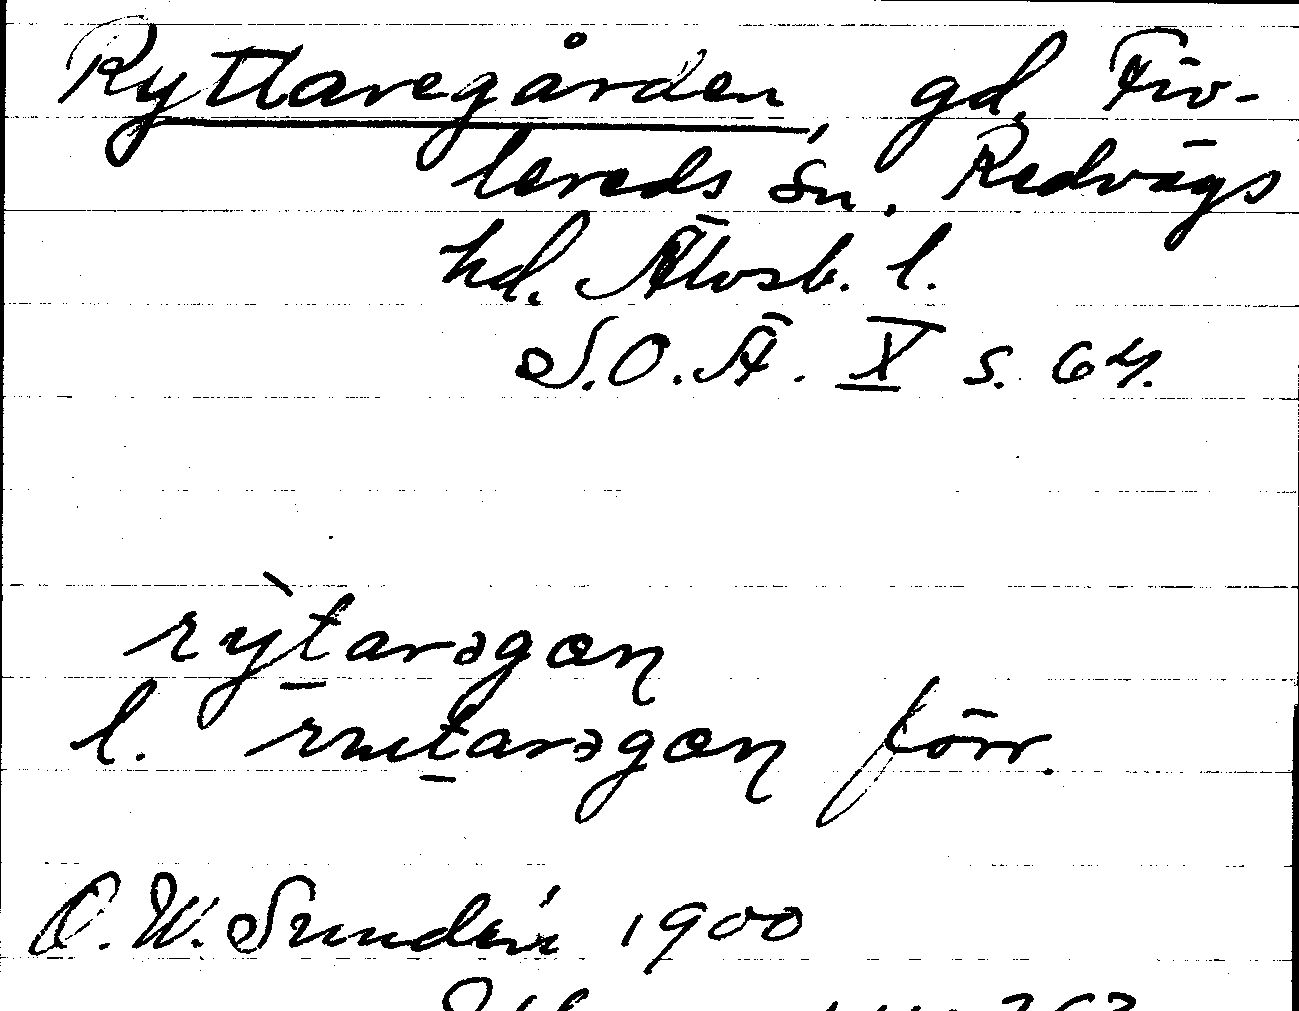 Ryttaregården, gd, Fiv-
lereds sn. Redvägs
hd. Älvsb. l.
S.O.Ä. X s. 64.
rỳtarəgɑɳ
l. rɯtarəgɑɳ förr.
O. W. Sundén 1900